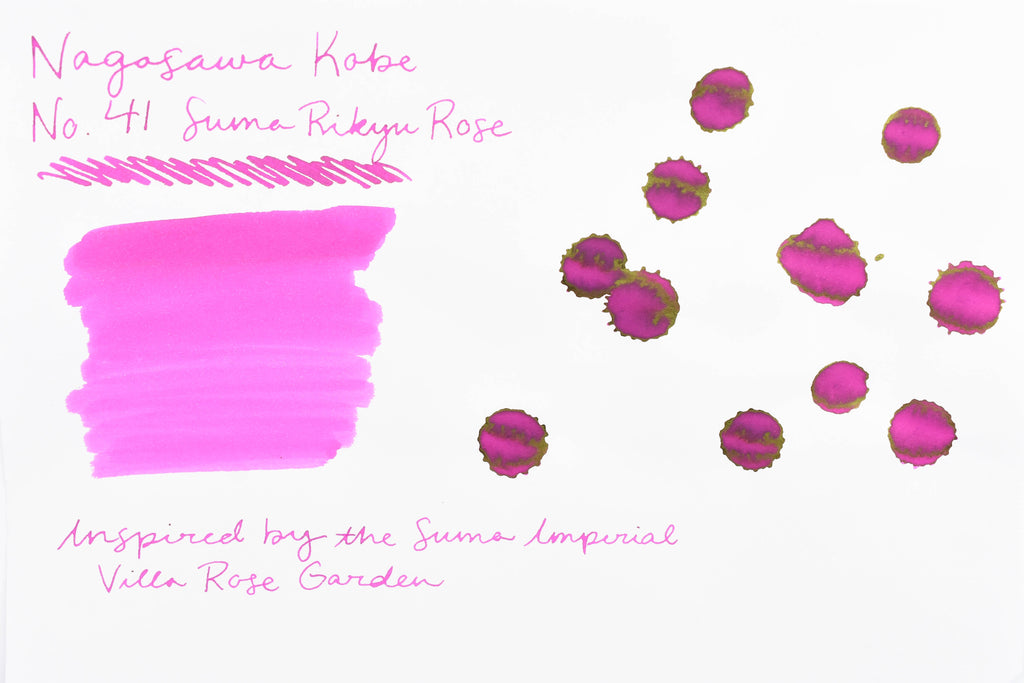 Nagasawa Kobe
No. 41 Suma Rikyu Rose
Inspired by the Suma Imperial
Villa Rose Garden